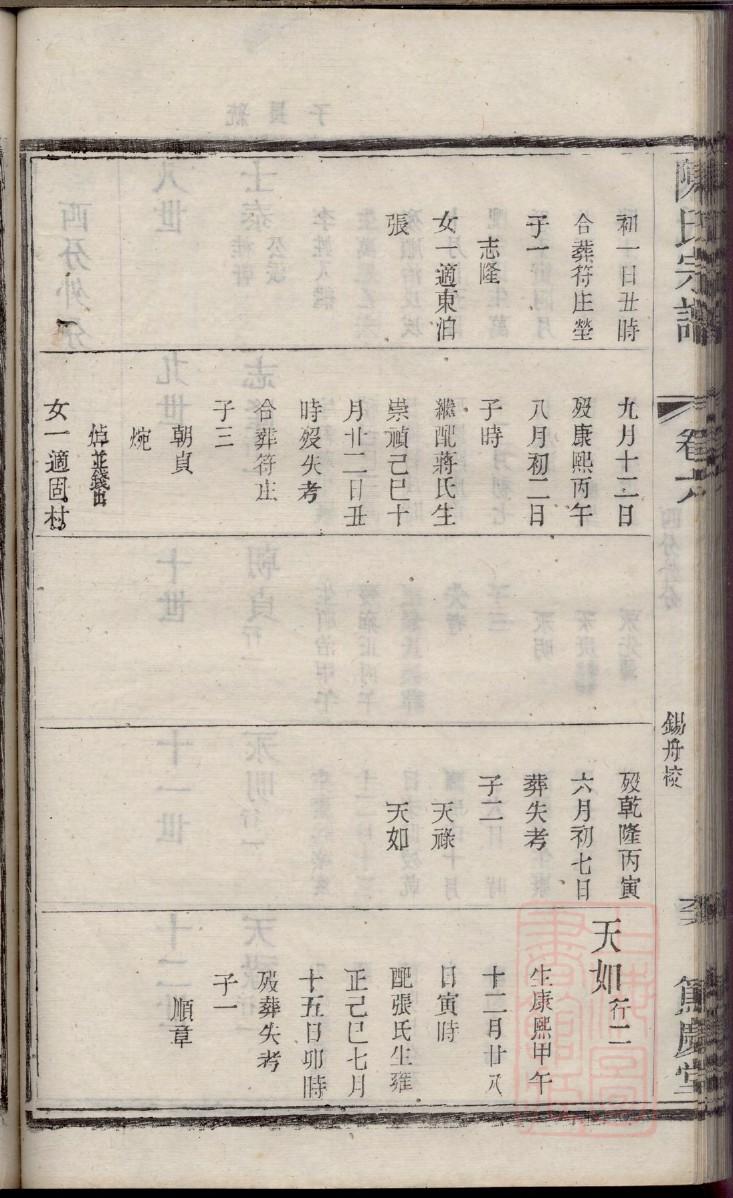 陳氏宗譜
卷六
錫舟校
篤慶堂
初一日丑時
合葬符庄塋
子一
志隆
女一適東泊
張
九月十二日
歿康熙丙午
八月初二日
子時
繼配蔣氏生
崇禎己巳十
月廿二日丑
時歿失考
合葬符庄
子三
朝貞
焥
女一適固村
歿乾隆丙寅
六月初七日
葬失考
子二
天祿
天如
天如行二
生康熙甲午
十二月廿八
日寅時
配張氏生雍
正己巳七月
十五日卯時
歿葬失考
子一
順章